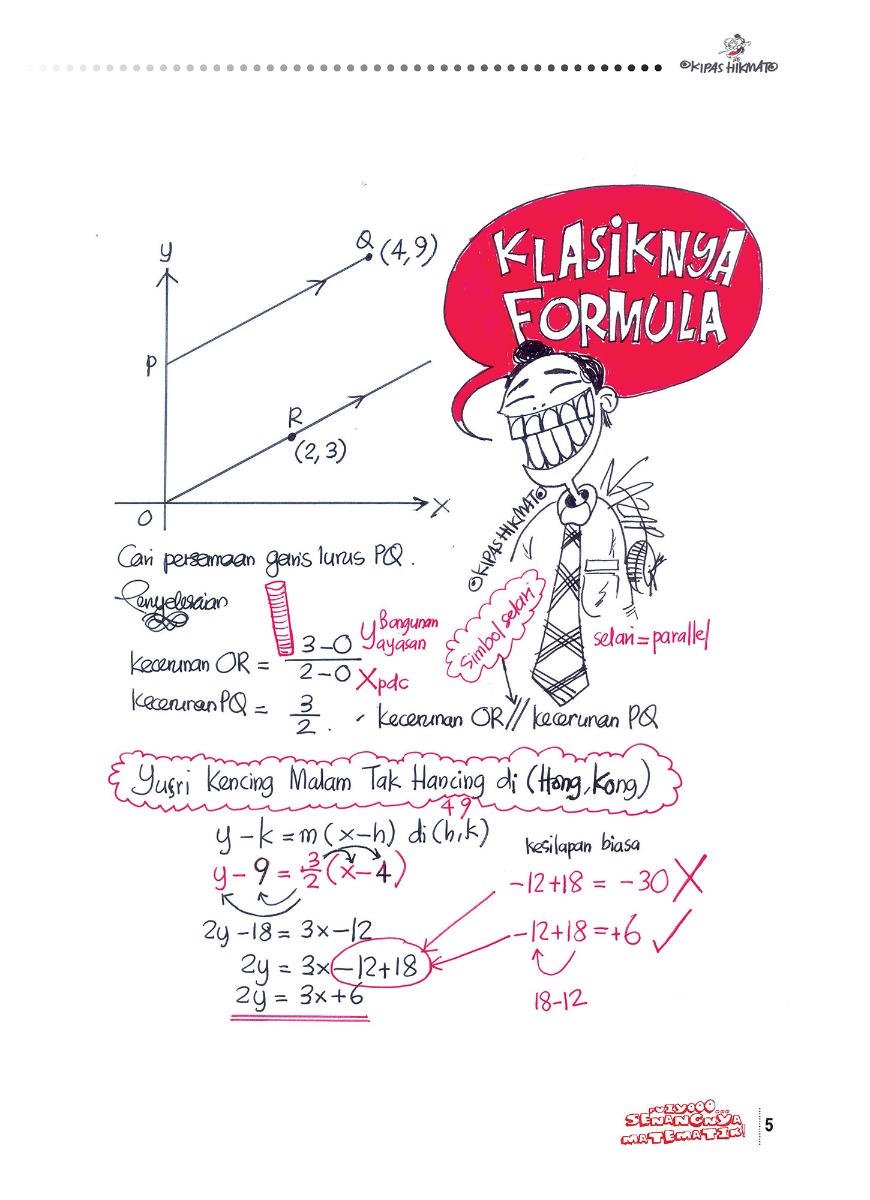 ©KIPAS HIKMAT©
KLASIKNYA
FORMULA
y
Q (4,9)
P
R
(2,3)
O
X
©KIPAS HIKMAT©
Cari persamaan garis lurus PQ.
Penyelesaian
kecerunan OR = 3-0 / 2-0
y Bangunan
yayasan
x pdc
Simbol selari
selari = parallel
kecerunan PQ = 3/2 . kecerunan OR // kecerunan PQ
Yusri Kencing Malam Tak Hancing di (Hong, Kong)
4 9
y - k = m (x-h) di (h,k)
y - 9 = 3/2 (x - 4)
2y - 18 = 3x - 12
2y = 3x - 12 + 18
2y = 3x + 6
kesilapan biasa
-12+18 = -30 X
-12+18 = +6 ✓
18-12
FUIYOOO...
SENANGNYA
MATEMATIK!
5